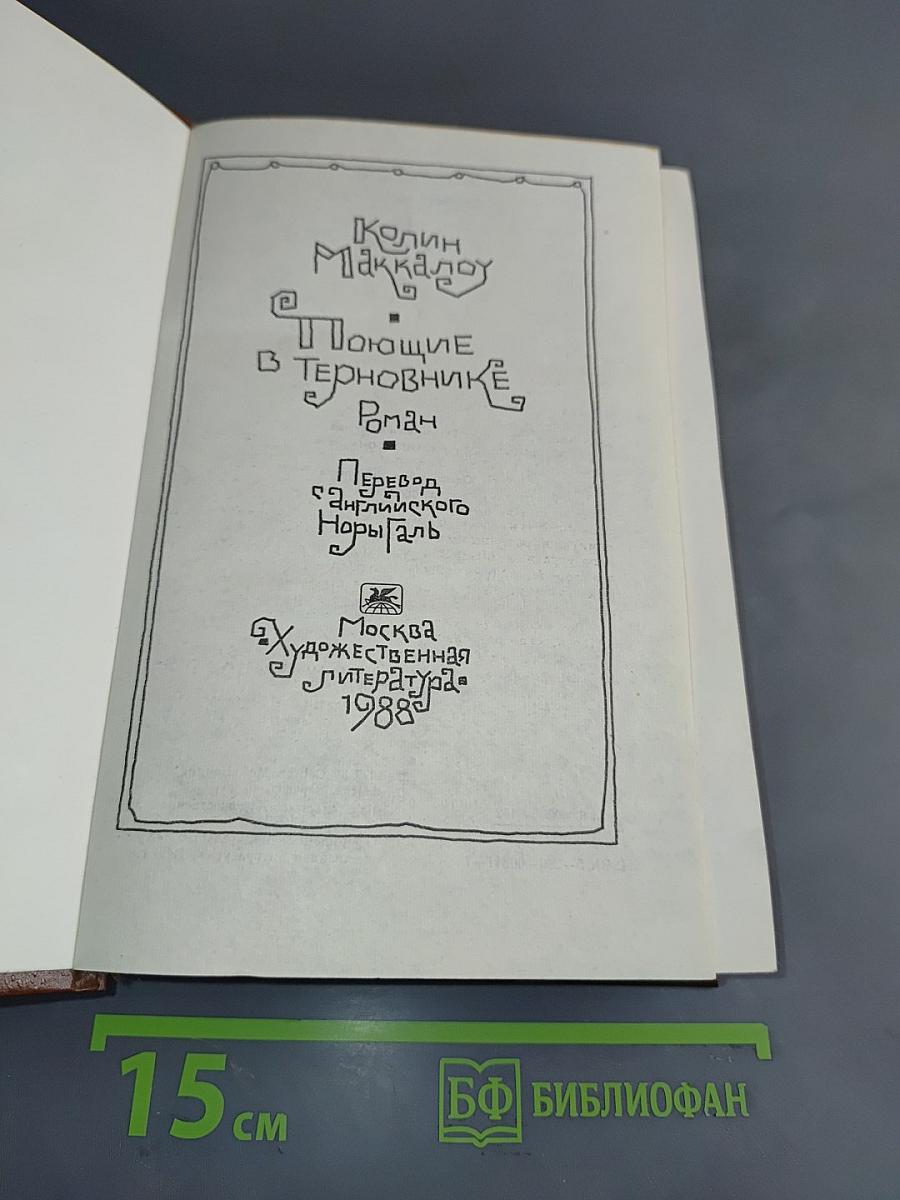 Колин
Маккалоу
Поющие
в терновнике
Роман
Перевод
с английского
Норы Галь
Москва
«Художественная
литература»
1988
15 см
БФ БИБЛИОФАН